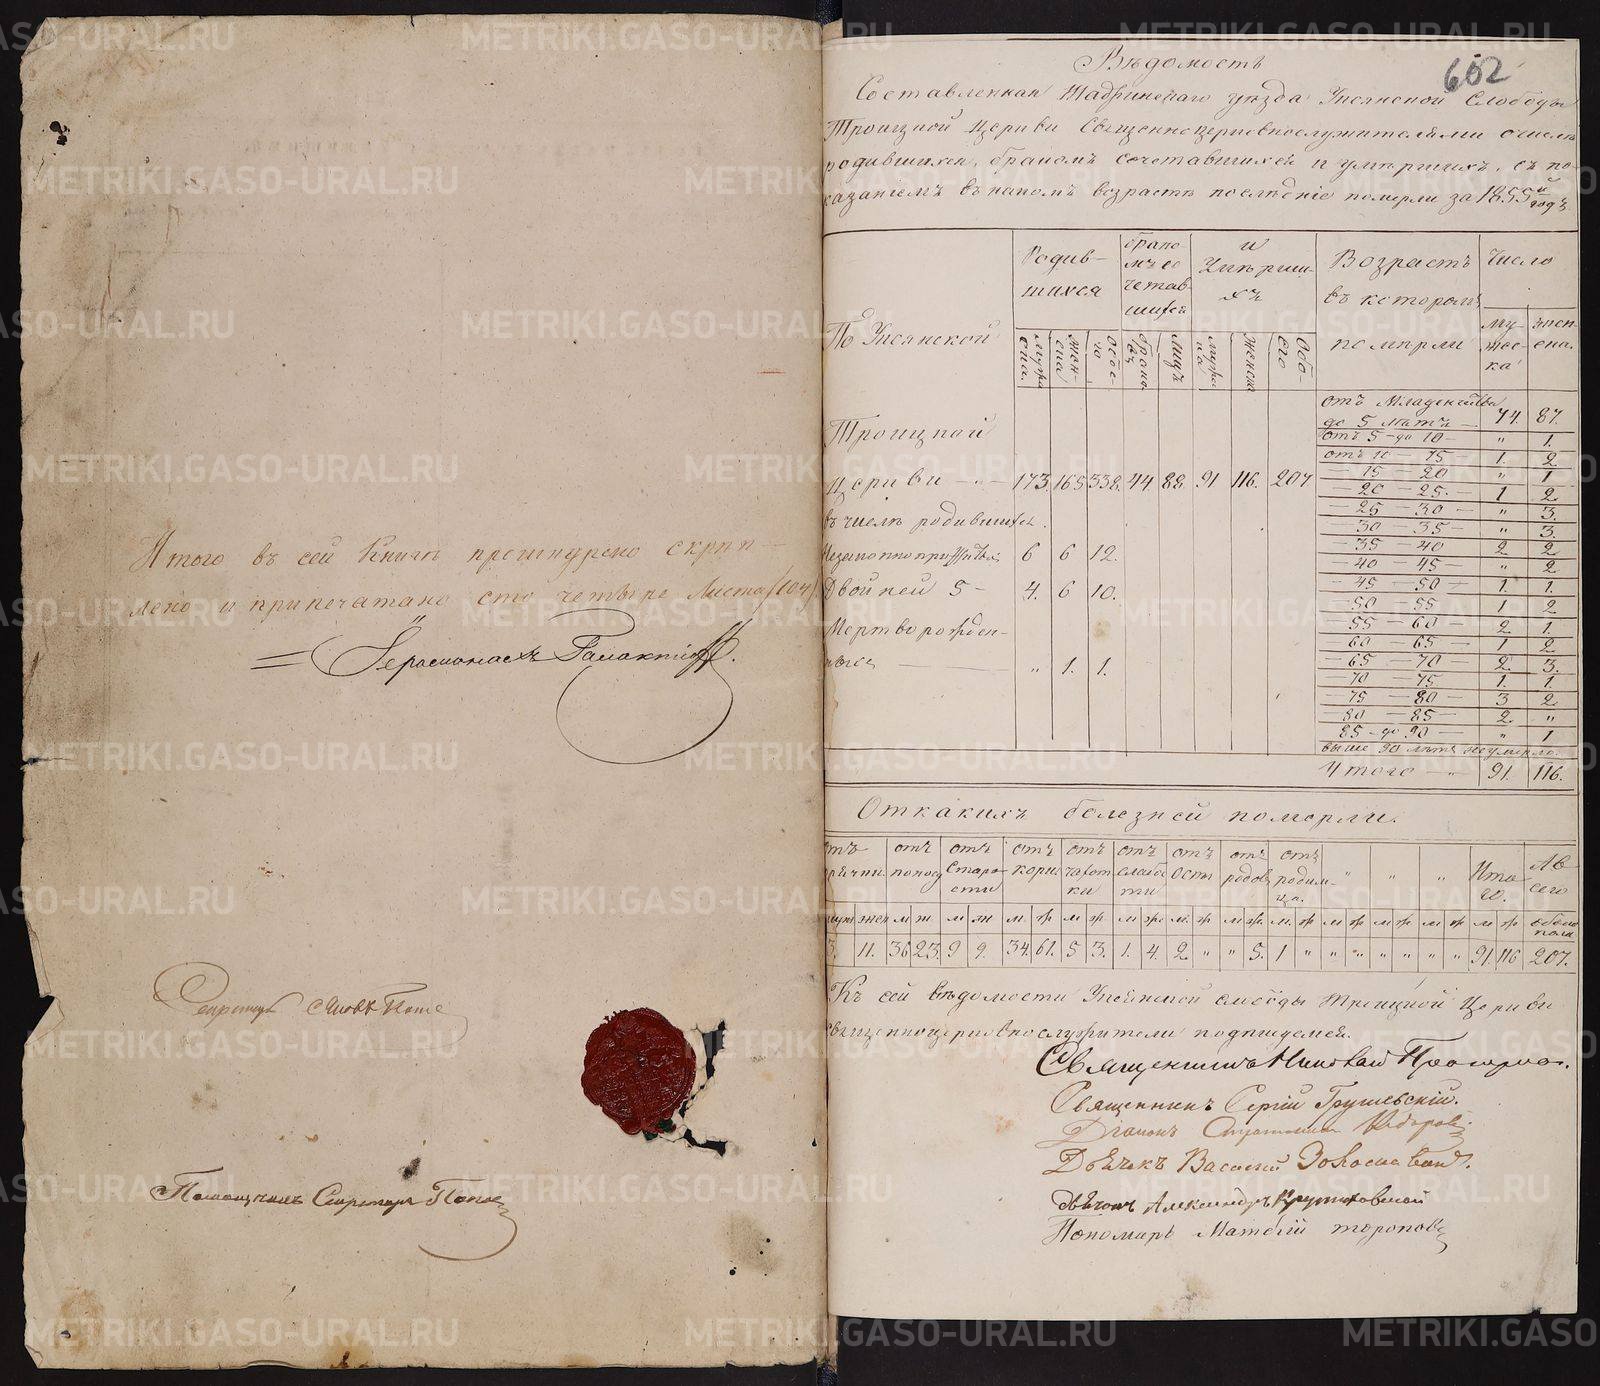 Итого въ сей Книгѣ прошнурено скрѣп-
лено и припечатано сто четыре листа (104).
Іеромонахъ Галактіонъ.
Секретарь
Помощникъ Секретаря Поповъ
602
Вѣдомость
Составленная Шадринскаго уѣзда Уксянской Слободы
Троицкой Церкви Священноцерковнослужителями о числѣ
родившихся, бракомъ сочетавшихся и умершихъ, съ по-
казаніемъ въ какомъ возрастѣ послѣдніе померли за 1855й годъ
По Уксянской
Родив-
шихся
брако-
мъ со
четав-
шихся
и
Умерши-
хъ
Возрастъ
въ которомъ
померли
Число
муж-
ска
жен-
ска.
мужска
женска
обоего
браковъ
лицъ
мужска
женска
обоего
Троицкой
Церкви 173. 165. 338. 44. 88. 91 116. 207
въ числѣ родившихся.
Незаконнорожденныхъ 6 6 12.
Двойней 5 - 4. 6 10.
Мертворожден-
ныхъ „ 1. 1.
отъ Младенчества
до 5 лѣтъ 74. 87.
отъ 5 - до 10 - „ 1.
отъ 10 - 15 1. 2
15 - 20 „ 1
20 - 25 - 1 2.
25 - 30 - „ 3.
30 - 35 - „ 3.
35 - 40 2 2
40 - 45 - „ 2
45 - 50 - 1. 1.
50 - 55 1 2
55 - 60 - 2. 1.
60 - 65 - 1 2
65 - 70 - 2. 3.
70 - 75 1. 1.
75 - 80 - 3 2
80 - 85 - 2. „
85 - до 90 - „ 1
выше 90 лѣтъ не умерло.
Итого 91. 116.
Отъ какихъ болезней померли.
отъ
горячки
отъ
понос
отъ
старо
сти
отъ
кори
отъ
чахот
ки
отъ
слабо
сти
отъ
Оспы
отъ
родовъ
отъ
родим-
ца.
„ „ „
Ито
го.
А в
сего
муж жен м ж м ж м. ж м ж м ж м. ж м ж. м. ж м ж м ж м ж м ж обоего пола
3. 11. 36 23. 9 9. 34. 61. 5 3. 1. 4. 2. „ „ 5. 1 „ „ „ „ „ „ „ 91. 116 207.
Къ сей вѣдомости Уксянской слободы Троицкой Церкви
священноцерковнослужители подписуемся.
Священникъ Николай
Священникъ Сергій Грушевскій.
Діаконъ Ѳедоровъ.
Дьячекъ Василій
Дьячокъ Александръ
Пономарь Матвѣй Тороповъ
METRIKI.GASO-URAL.RU